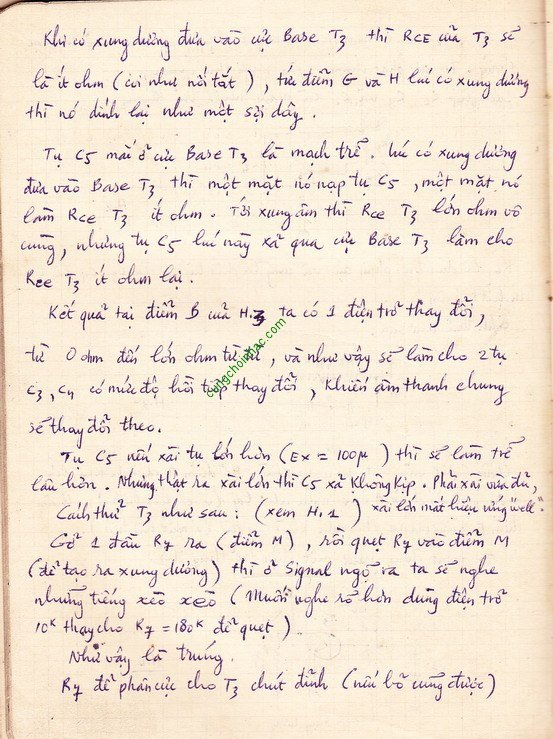 Khi có xung dương đưa vào cực Base T3 thì RCE của T3 sẽ
là ít ohm (coi như nối tắt), tức điểm G và H lúc có xung dương
thì nó dính lại như một sợi dây.
Tụ C5 mắc ở cực Base T3 là mạch trễ. Lúc có xung dương
đưa vào Base T3 thì một mặt nó nạp tụ C5, một mặt nó
làm RCE T3 ít ohm. Tới xung âm thì RCE T3 lớn ohm vô
cùng, nhưng tụ C5 lúc này xả qua cực Base T3 làm cho
RCE T3 ít ohm lại.
Kết quả tại điểm B của H.3 ta có 1 điện trở thay đổi,
từ 0 ohm đến lớn ohm từ từ, và như vậy sẽ làm cho 2 tụ
C3, C4 có mức độ hồi tiếp thay đổi, khiến âm thanh chung
sẽ thay đổi theo.
Tụ C5 nếu xài tụ lớn hơn (Ex = 100µ) thì sẽ làm trễ
lâu hơn. Nhưng thật ra xài lớn thì C5 xả không kịp. Phải xài vừa đủ,
xài lớn mất hiệu ứng "well".
Cách thử T3 như sau: (xem H.1)
Gở 1 đầu R7 ra (điểm M), rồi quẹt R7 vào điểm M
(để tạo ra xung dương) thì ở Signal ngỏ ra ta sẽ nghe
những tiếng xẹo xẹo (Muốn nghe rỏ hơn dùng điện trở
10K thay cho R7 = 180K để quẹt).
Như vậy là trúng.
R7 để phân cực cho T3 chút đỉnh (nếu bỏ cũng được)
cungchoinhac.com